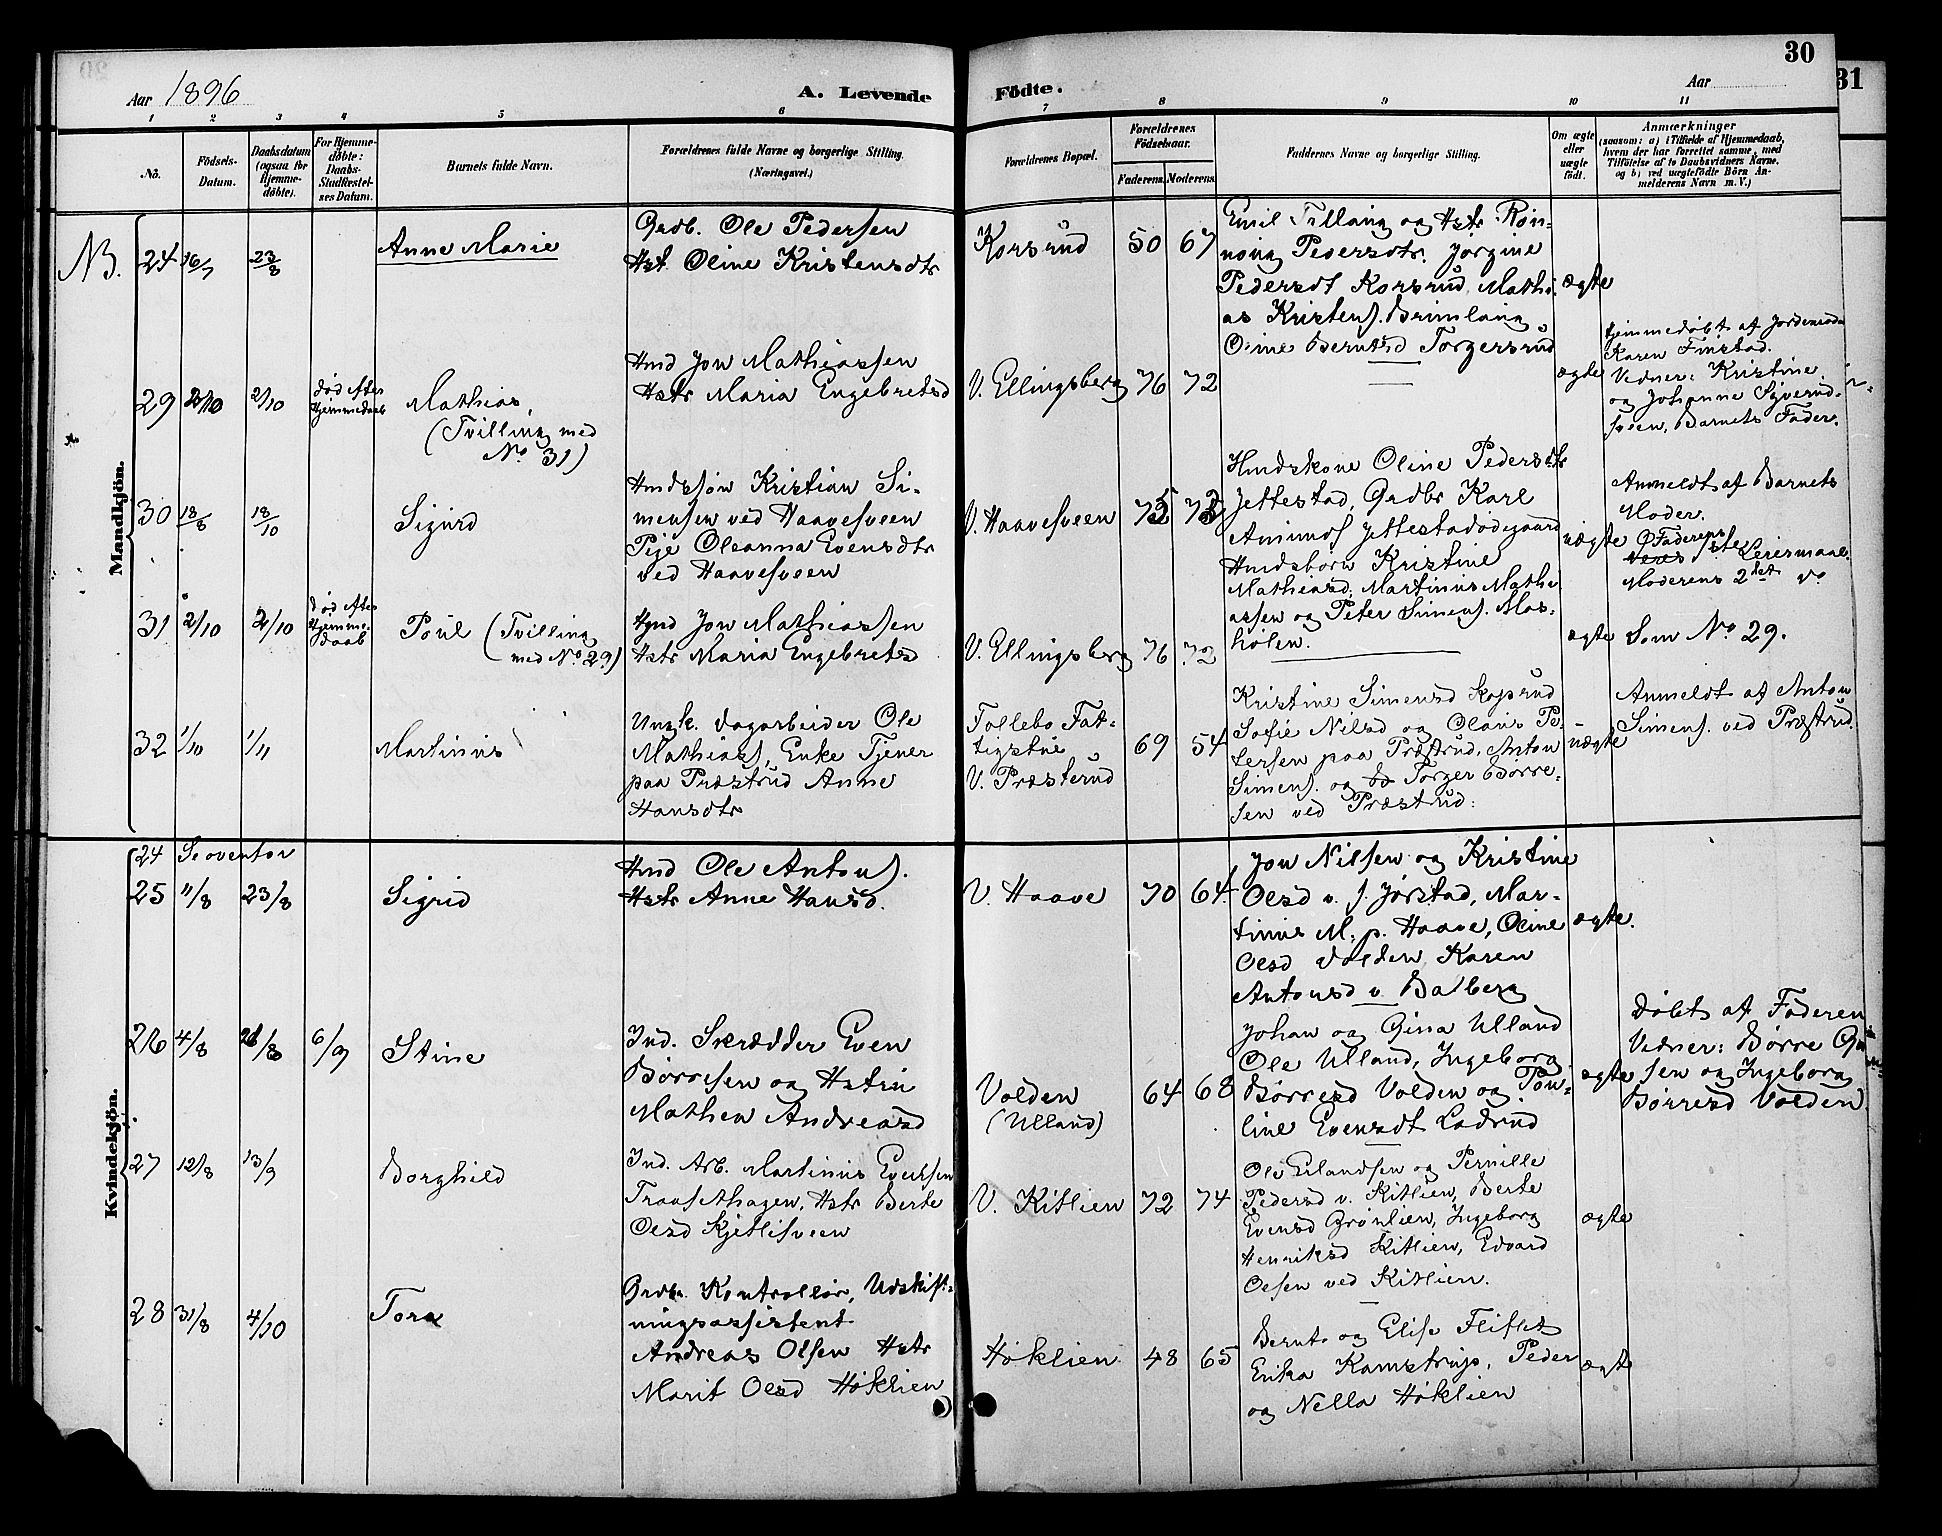 30
31
Aar 1896
A. Levende
Födte.
Aar
1 2 3 4 5 6 7 8 9 10 11
No.
Födsels-Datum.
Daabsdatum (ogsaa for Hjemme-döbte).
For Hjemme-döbte: Daabs-Stadfæstel-ses Datum.
Barnets fulde Navn.
Forældrenes fulde Navne og borgerlige Stilling. (Næringsvei.)
Forældrenes Bopæl.
Forældrenes Födselsaar.
Faderens. Moderens.
Faddernes Navne og borgerlige Stilling.
Om ægte eller uægte födt.
Anmærkninger
(saasom: a) i Tilfælde af Hjemmedaab, hvem der har forrettet samme, med Tilföielse af to Daabsvidners Navne, og b) ved uægtefödte Börn An-melderens Navn m. V.)
Mandkjön.
NB. 24 16/7 23/8
Anne Marie
Grdb. Ole Pedersen
Hst. Oline Kristensdtr
Korsrud 50 67
Emil Tillang og Hstr. Røn-
nong Pedersdtr. Jørgine
Pedersdt Korsrud, Mathi-
as Kristens. Brimlang
Oline Berntsd Torgersrud
ægte
29 2/10 2/10
død efter Hjemmedaab
Mathias,
(Tvilling med
No 31)
Hmd Jon Mathiassen
Hstr Maria Engebretsd
V. Ellingsberg 76 72
ægte
Hjemmedøbt af Jordemoder
Karen Finstad.
Vidner: Kristine
og Johanne Syverud-
sveen, Barnets Fader.
30 18/8 18/10
Sigurd
Hmdssøn Kristian Si-
mensen ved Haavesveen
Pige Oleanna Evensdtr
ved Haavesveen
V. Haavesveen 75 73
Hmdskone Oline Pedersdtr
Jettestad, Grdbr Karl
Amunds Jettestadødegaard
Hmdsbørn Kristine
Mathiasd, Martinus Mathi-
assen og Peter Simens. Mos-
holen.
uægte
Anmeldt af Barnets
Moder.
Faderens 1ste Leiermaal.
Moderens 2det Do
31 2/10 2/10
død efter Hjemme-daab
Poul (Tvilling
med No 29)
Hmd Jon Mathiassen
Hstr Maria Engebretsd
V. Ellingsberg 76 72
ægte Som No 29.
32 1/10 1/11
Martinus
Ungk. Dagarbeider Ole
Mathiass, Enke Tjener
paa Præstrud Anne
Hansdtr
Follebo Fat-
tigstue
V. Præsterud
69 54
Kristine Simensd Koprud
Sofie Nilsd og Olaus Pe-
tersen paa Præstrud, Anton
Simens. og Torger Børre-
sen ved Præstrud.
uægte
Anmeldt af Anton
Simens. ved Præstrud.
Kvindekjön.
24 Se ovenfor
25 11/8 23/8
Sigrid
Hmd Ole Antons.
Hstr Anne Hansd.
V. Haave 70 64
Jon Nilsen og Kristine
Olsd v. s. Jørstad, Mar-
tinus M. p. Haave, Oline
Olsd Volden, Karen
Antonsd v. Balberg
ægte.
26 4/8 26/8 6/9
Stine
Ind. Skrædder Even
Børresen og Hstru
Mathea Andreasd
Volden
(Ulland)
64 68
Johan og Gina Ulland
Ole Ulland, Ingeborg
Børresd Volden og Pau-
line Evensdt Ladrud
ægte
Døbt af Faderen
Vidner: Børre
sen og Ingeborg
Børresd Volden
27 12/8 13/9
Borghild
Ind. Arb. Martinus Evensen
Traasethagen, Hstr Berte
Olsd Kjetlisveen
V. Kitlien 72 74
Ole Erlandsen og Pernille
Pedersd v. Kitlien, Berte
Evensd Grønlien, Ingeborg
Henriksd Kitlien, Edvard
Olsen ved Kitlien.
ægte
28 31/8 4/10
Tora
Grdbr. Kontrollør, Udskift-
ningsassistent
Andreas Olsen Hstr
Marit Olsd Høklien
Høklien 48 65
Bernt og Elise Fliflet
Erika Kamstrup, Peder
og Nella Høklien
ægte